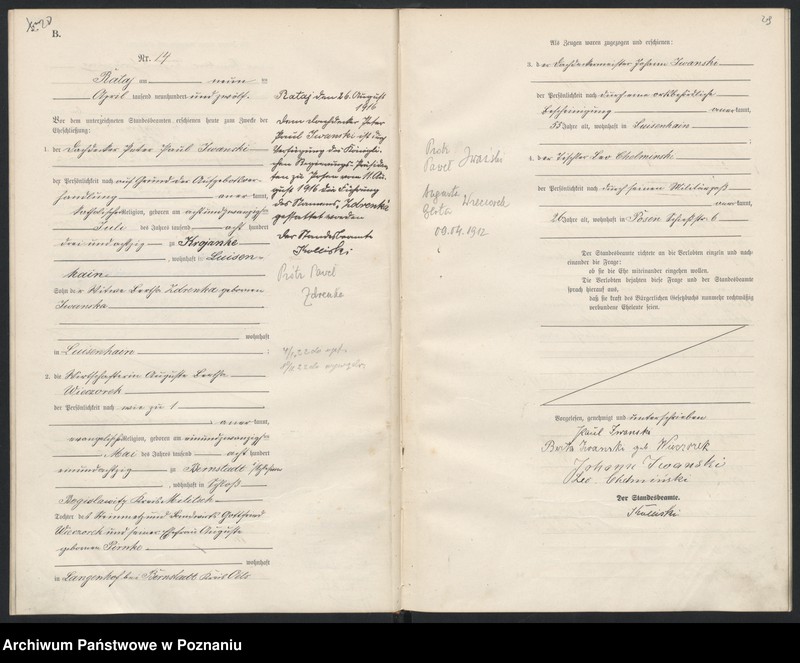 B.
Nr. 14
Rataj am neun ten
April tausend neunhundert und zwölf.
Vor dem unterzeichneten Standesbeamten erschienen heute zum Zwecke der
Eheschließung:
1. der Dachdecker Peter Paul Iwanski
der Persönlichkeit nach auf Grund der Aufgebotsver-
handlung anerkannt,
katholischer Religion, geboren am achtundzwanzigsten
Juli des Jahres tausend acht hundert
dreiundachtzig zu Krojanke
, wohnhaft in Luisen-
hain
Sohn der Witwe Bertha Zdrenka geborenen
Iwanska
wohnhaft
in Luisenhain ;
2. die Wirtschafterin Auguste Bertha
Wieczorek
der Persönlichkeit nach wie zu 1
anerkannt,
evangelischer Religion, geboren am einundzwanzigsten
Mai des Jahres tausend acht hundert
einundachtzig zu Bernstadt i/Schlesien
, wohnhaft in Schloß
Bogislawitz Kreis Militsch
Tochter des Steinmetz und Landwirts Gottfried
Wieczorek und seiner Ehefrau Auguste
geborenen Pernke
wohnhaft
in Langenhof bei Bernstadt Kreis Oels
Rataj den 26. August
1916
Dem Dachdecker Peter
Paul Iwanski ist durch
Verfügung des Königli-
chen Regierungs-Präsiden-
ten zu Posen vom 11 Au-
gust 1916 die Führung
des Namens "Zdrenka"
gestattet worden
Der Standesbeamte
Kolliski
Piotr Pavel
Zdrenka
29
Als Zeugen waren zugezogen und erschienen:
3. der Dachdeckermeister Johann Iwanski
der Persönlichkeit nach durch eine ortsbehördliche
Bescheinigung anerkannt,
55 Jahre alt, wohnhaft in Luisenhain
;
4. der Tischler Leo Cholminski
der Persönlichkeit nach durch seinen Militärpaß
anerkannt,
26 Jahre alt, wohnhaft in Posen
Piotr
Pavel Iwański
Augusta
Berta Wieczorek
09.04.1912
Der Standesbeamte richtete an die Verlobten einzeln und nach-
einander die Frage:
ob sie die Ehe miteinander eingehen wollen.
Die Verlobten bejahten diese Frage und der Standesbeamte
sprach hierauf aus,
daß sie kraft des Bürgerlichen Gesetzbuchs nunmehr rechtmäßig
verbundene Eheleute seien.
Vorgelesen, genehmigt und unterschrieben
Paul Iwanski
Berta Iwanski geb Wieczorek
Johann Iwański
Leo Cholmiński
Der Standesbeamte.
Kolliski
Archiwum Państwowe w Poznaniu